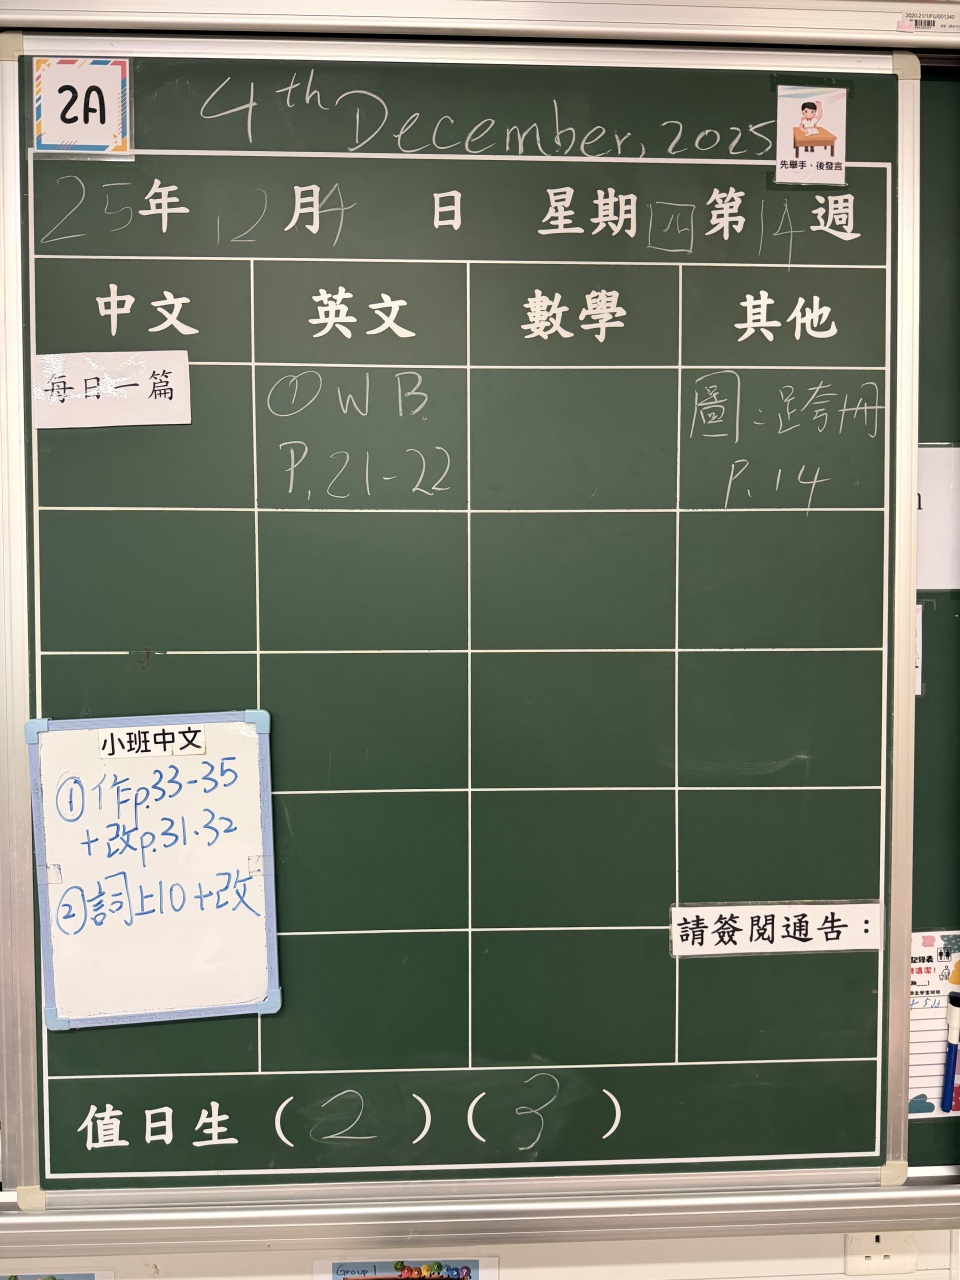 2020-21/1/FU/001340
2A
4th December, 2025
先舉手、後發言
25年 12月4日 星期四 第14週
中文 英文 數學 其他
每日一篇
① W B.
P.21-22
圖:跨冊
P.14
小班中文
① 作p.33-35
+改p.31.32
② 詞上10+改
請簽閱通告：
值日生 (2) (3)
Group 1